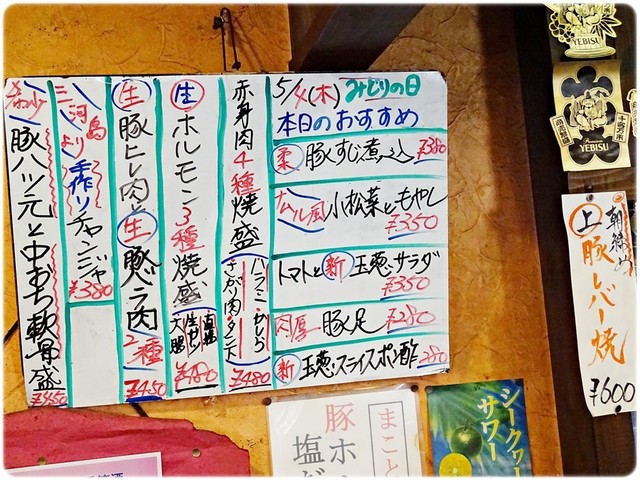 5/4(木)みどりの日
本日のおすすめ
柔 豚すじ煮込 ¥380
ナムル風 小松菜ともやし
¥350
トマトと新玉葱サラダ
¥350
肉厚 豚足 ¥280
新玉葱スライスポン酢 280
赤身肉4種焼盛
ハラミ・かしら
さがり肉・タンド
¥480
生 ホルモン3種焼盛
直腸
生ガツ
大腸
¥480
生 豚ヒレ肉と生豚バラ肉
2種
¥450
三河島より
手作りチャンジャ
¥380
豚ハツ元と中おち軟骨盛
¥450
YEBISU
YEBISU
朝締め
上 豚レバー焼
¥600
まこと
豚ホ
塩
シークヮー
サワー